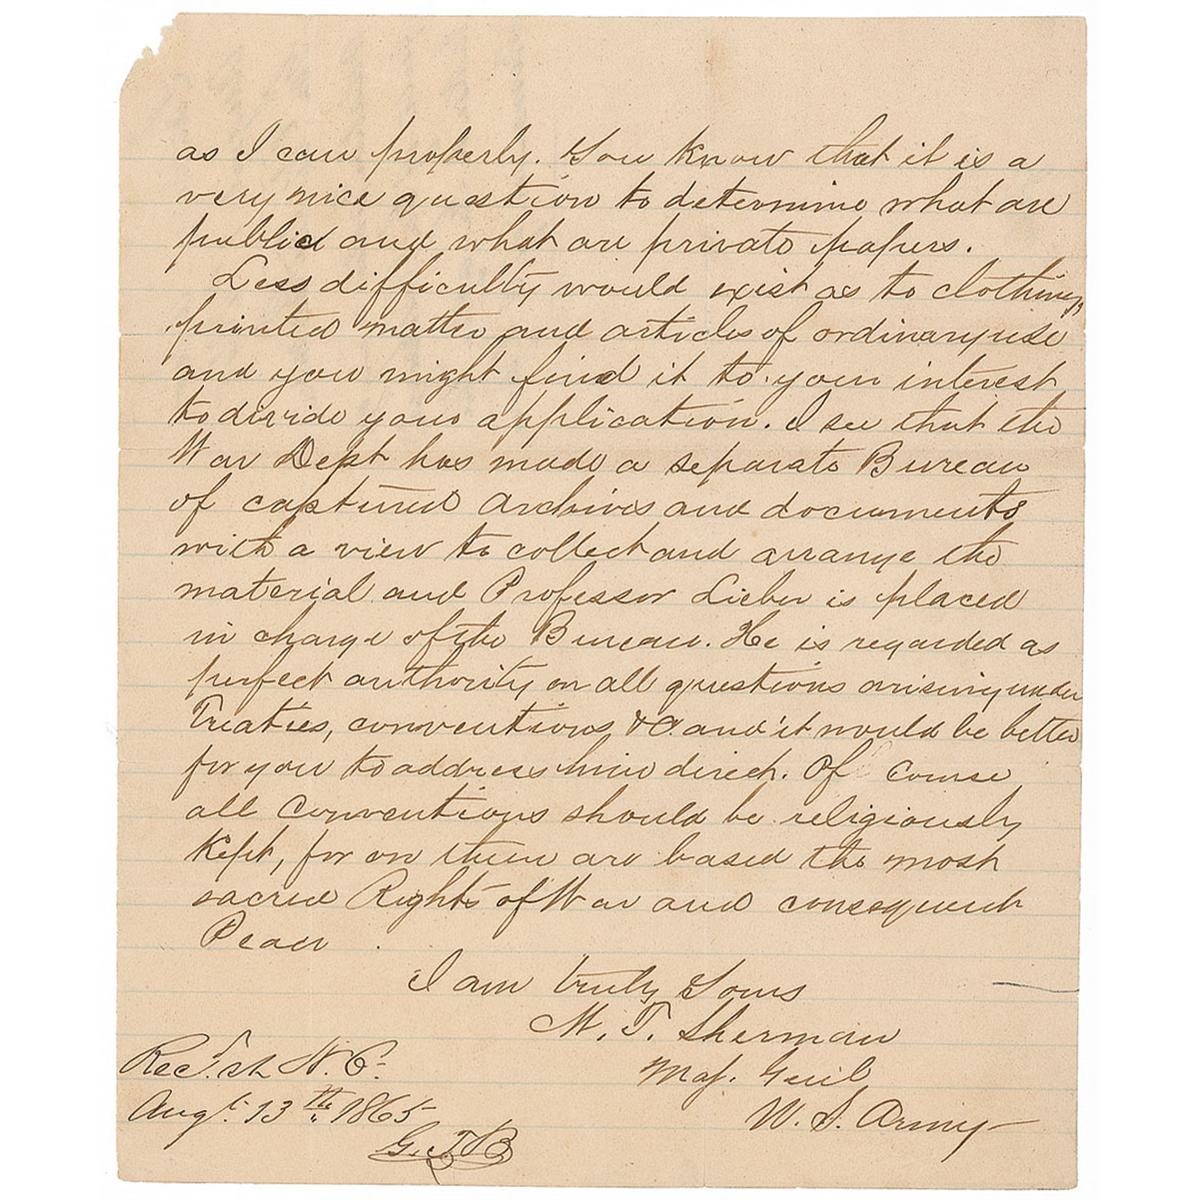 as I can properly. You know that it is a
very nice question to determine what are
public and what are private papers.
Less difficulty would exist as to clothing,
printed matter and articles of ordinary use
and you might find it to your interest
to divide your application. I see that the
War Dept has made a separate Bureau
of captured Archives and documents
with a view to collect and arrange the
material and Professor Lieber is placed
in charge of the Bureau. He is regarded as
perfect authority on all questions arising under
Treaties, conventions &c and it would be better
for you to address him direct. Of Course
all Conventions should be religiously
Kept, for on them are based the most
sacred Rights of War and consequent
Peace
I am truly Yours
W. T. Sherman
Maj. Genl
U. S. Army
Rec'd. at N. C.
Augt. 13th 1865
G. T. B